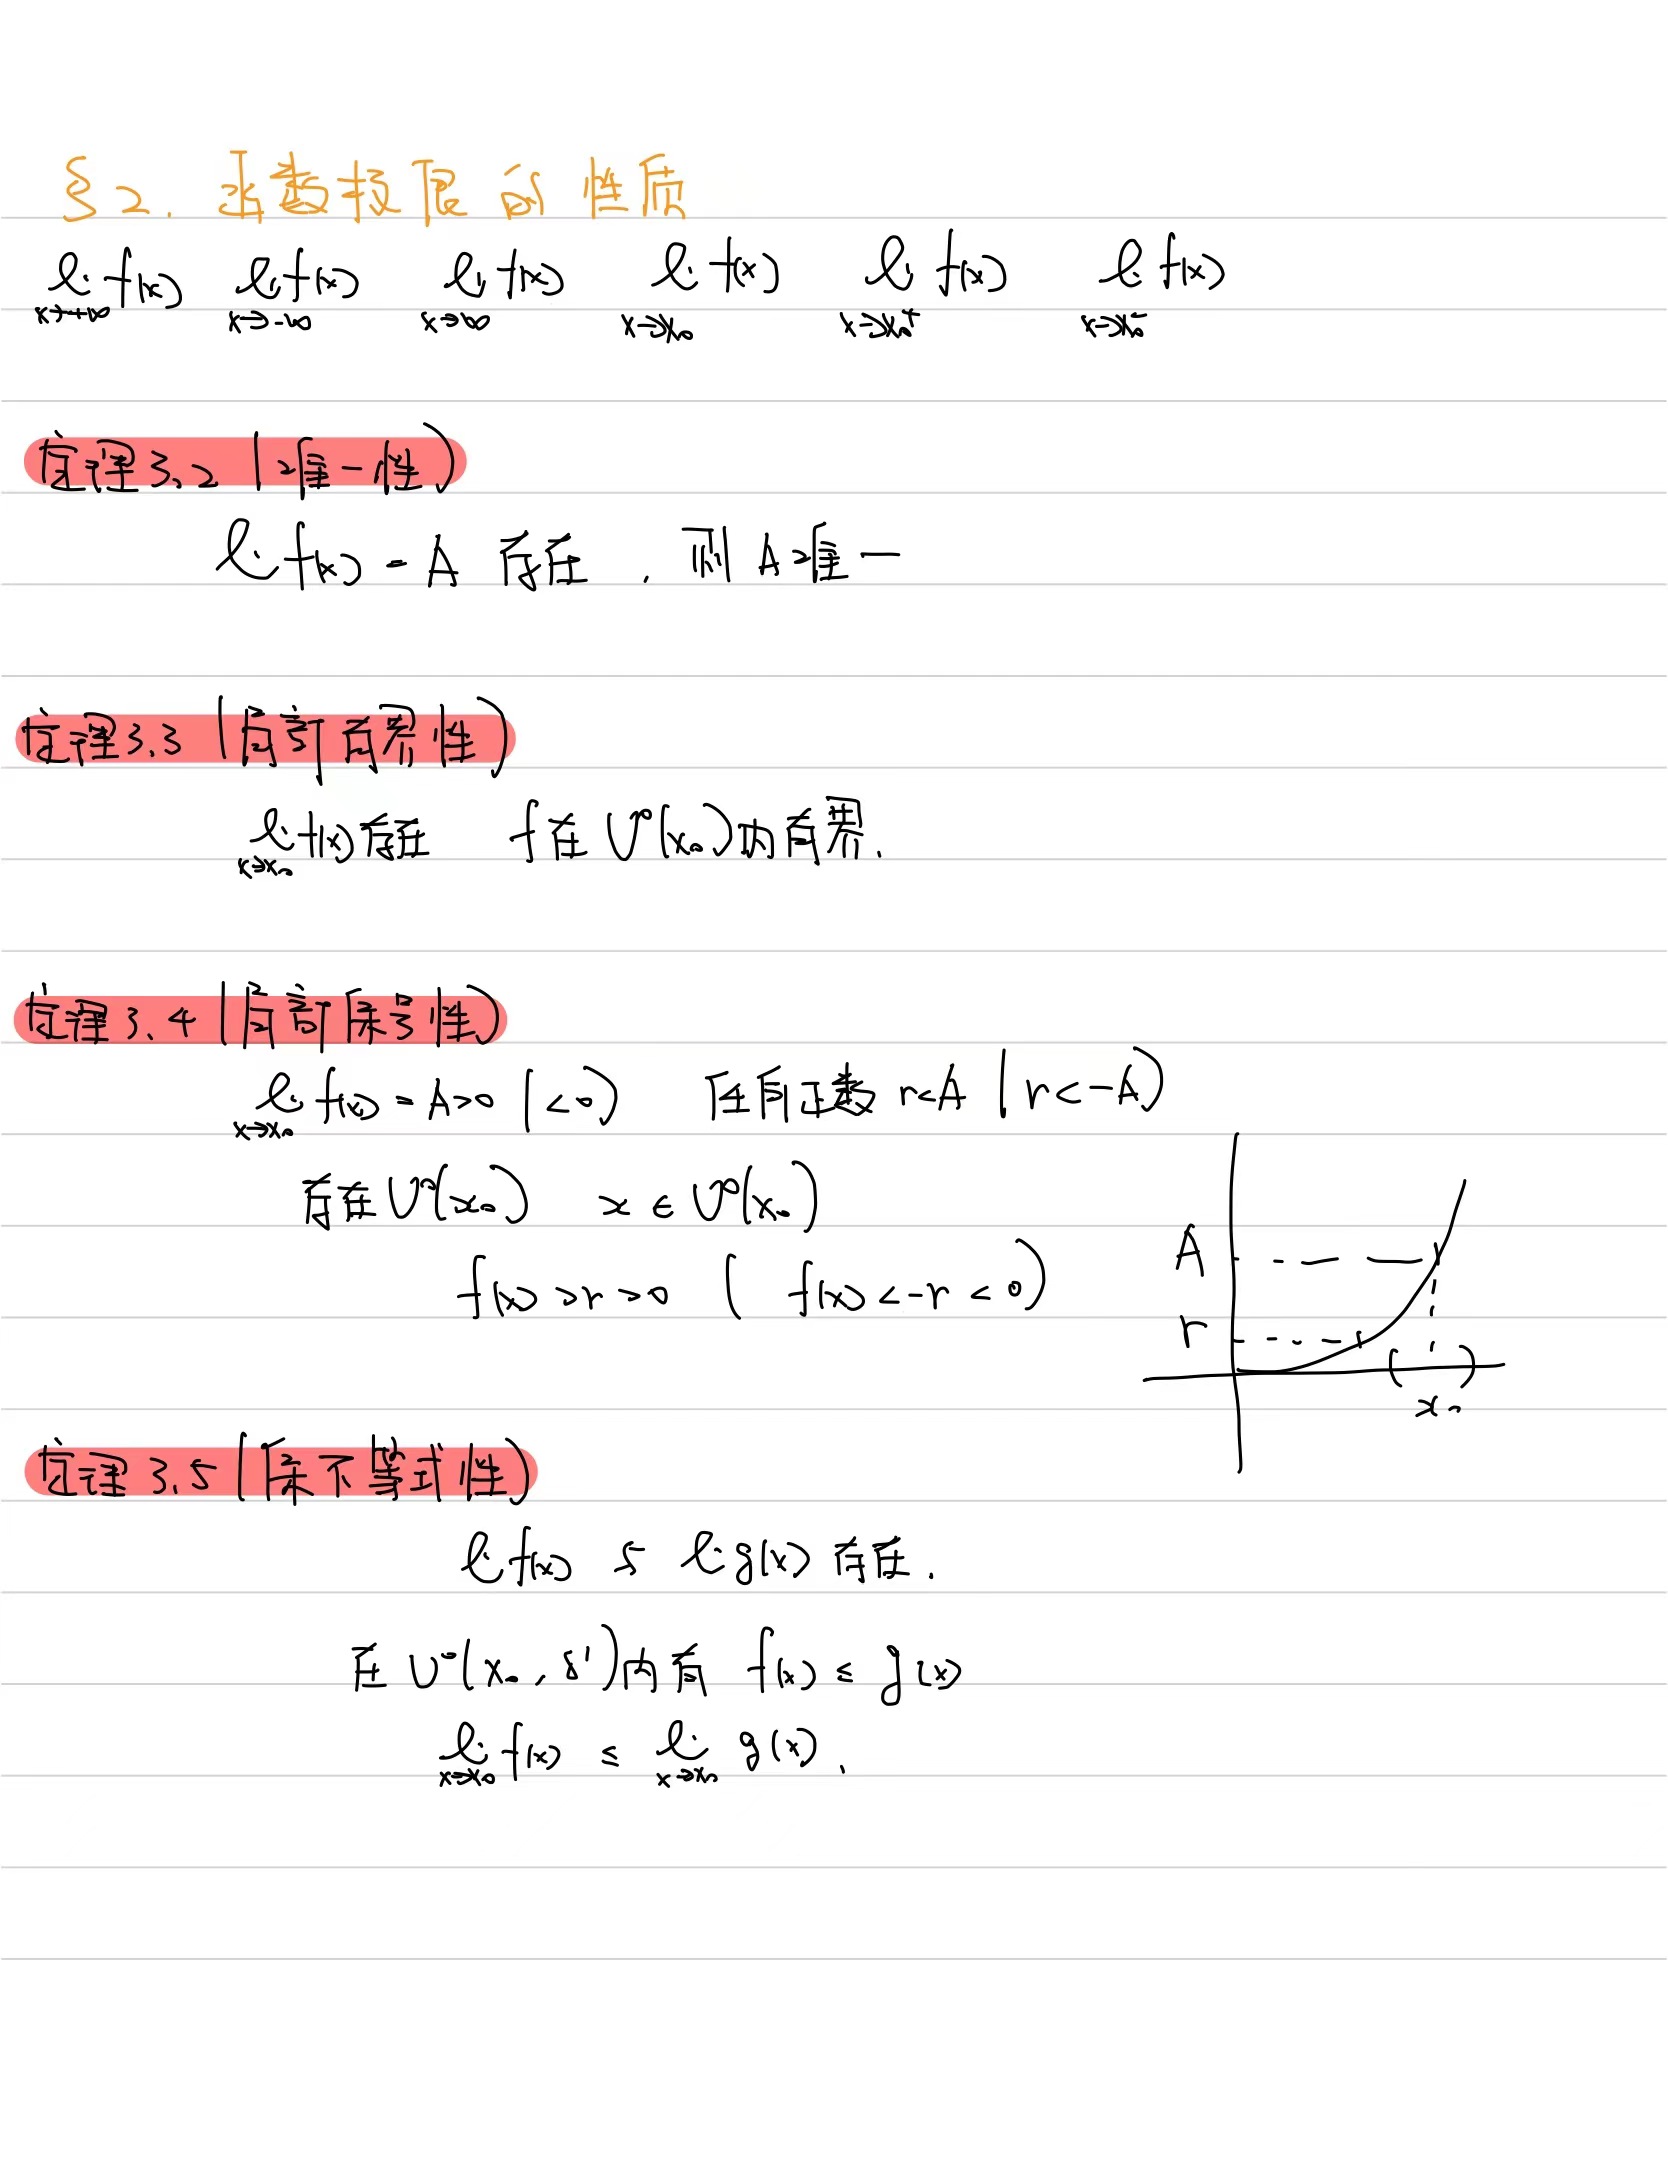 §2. 函数极限的性质
lim f(x) lim f(x) lim f(x) lim f(x) lim f(x) lim f(x)
x→+∞ x→-∞ x→∞ x→x₀ x→x₀⁺ x→x₀⁻
定理3.2 (唯一性)
lim f(x) = A 存在, 则A唯一
定理3.3 (局部有界性)
lim f(x)存在 f在U°(x₀)内有界.
x→x₀
定理3.4 (局部保号性)
lim f(x) = A>0 (<0) 任何正数 r<A (r<-A)
x→x₀
存在U°(x₀) x∈U°(x₀)
f(x)>r>0 ( f(x)<-r<0)
A
r
x₀
定理3.5 (保不等式性)
lim f(x) 与 lim g(x) 存在.
在U°(x₀,δ')内有 f(x)≤g(x)
lim f(x) ≤ lim g(x).
x→x₀ x→x₀